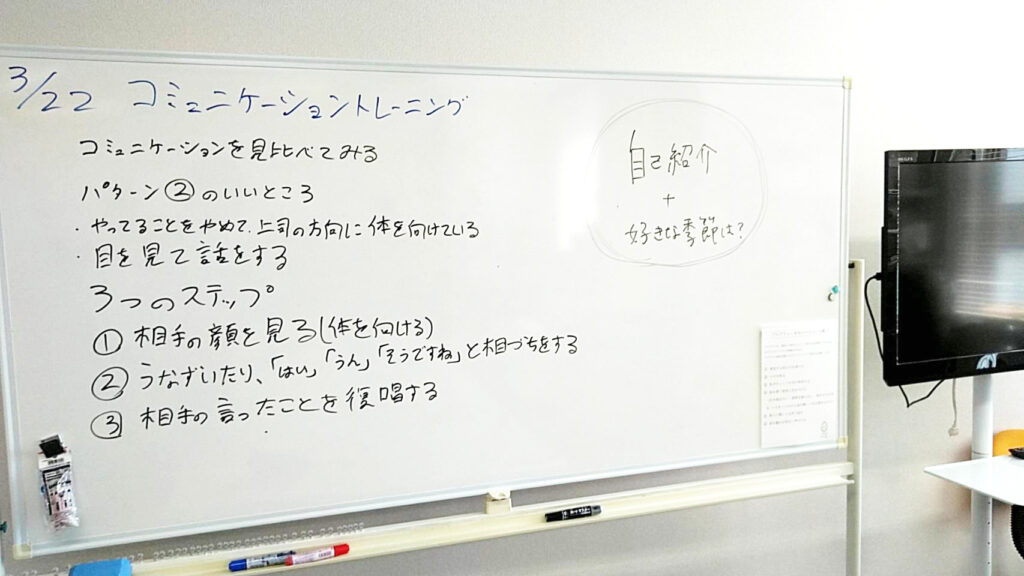 3/22 コミュニケーショントレーニング
コミュニケーションを見比べてみる
パターン②のいいところ
・やってることをやめて、上司の方向に体を向けている
・目を見て話をする
3つのステップ
① 相手の顔を見る(体を向ける)
② うなずいたり、「はい」「うん」「そうですね」と相づちをする
③ 相手の言ったことを復唱する
自己紹介
+
好きな季節は?